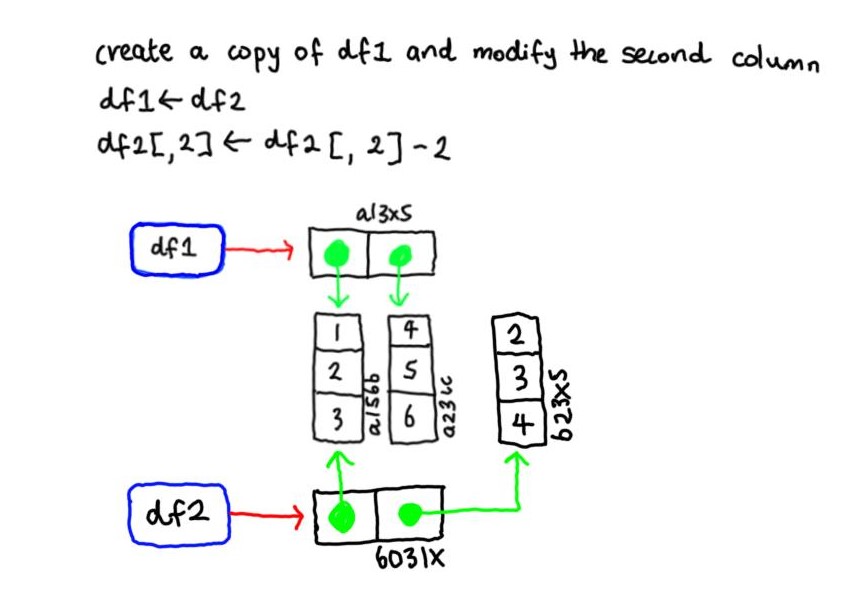 create a copy of df1 and modify the second column
df1 ← df2
df2[,2] ← df2[, 2] - 2
a13x5
df1
1
2
3
a156b
4
5
6
a231c
2
3
4
b23x5
df2
6031x